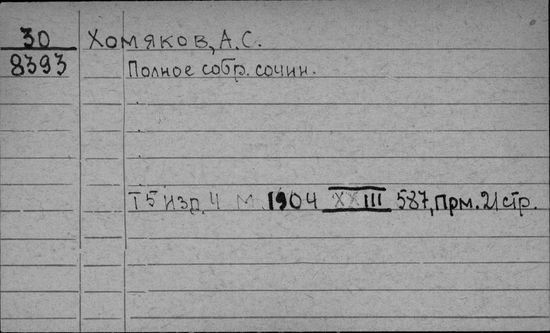 30 Хомяков, А.С.
8393 Полное собр. сочин.
Т 5 изд. 4 М. 1904 XXIII 587, Прм. 21 стр.